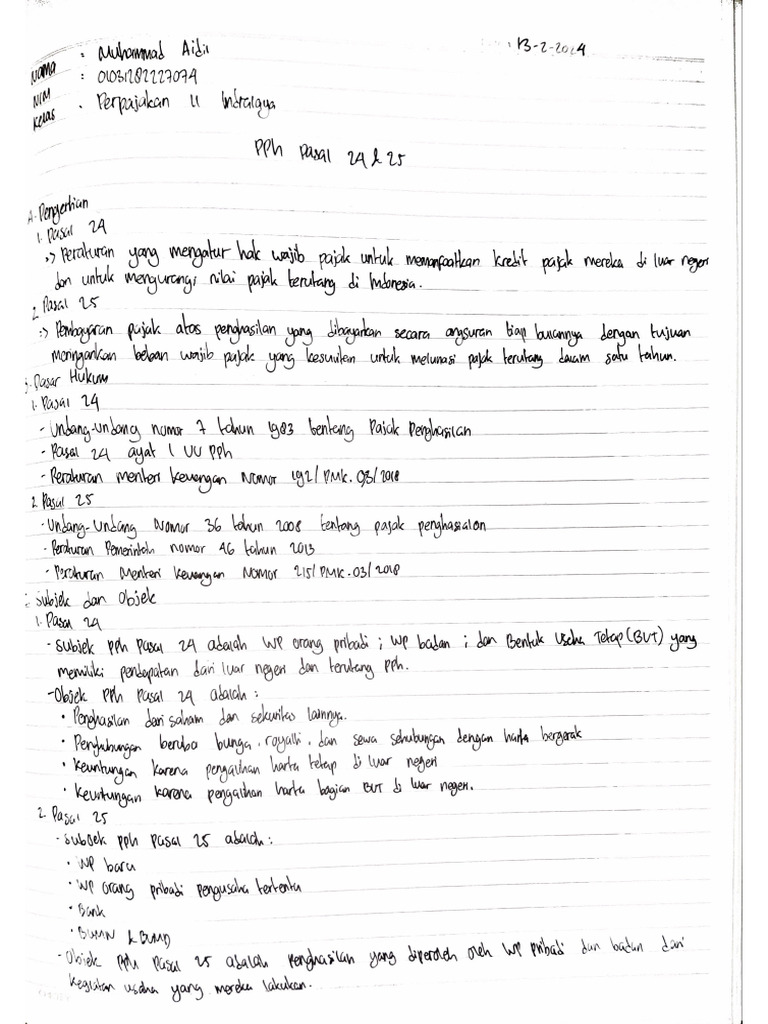 13-2-2024
Nama : Muhammad Aidil
NIM : 01031282227074
Kelas : Perpajakan II Indralaya
PPh Pasal 24 & 25
A. Pengertian
1. Pasal 24
=> Peraturan yang mengatur hak wajib pajak untuk memanfaatkan kredit pajak mereka di luar negeri
dan untuk mengurangi nilai pajak terutang di Indonesia.
2. Pasal 25
=> Pembayaran pajak atas penghasilan yang dibayarkan secara angsuran tiap bulannya dengan tujuan
meringankan beban wajib pajak yang kesulitan untuk melunasi pajak terutang dalam satu tahun.
B. Dasar Hukum
1. Pasal 24
- Undang-Undang nomor 7 tahun 1983 tentang Pajak Penghasilan
- Pasal 24 ayat 1 UU PPh
- Peraturan menteri keuangan Nomor 192/PMK.03/2018
2. Pasal 25
- Undang-Undang Nomor 36 tahun 2008 tentang pajak penghasilan
- Peraturan Pemerintah nomor 46 tahun 2013
- Peraturan Menteri Keuangan Nomor 215/PMK.03/2018
C. Subjek dan Objek
1. Pasal 24
- Subjek PPh Pasal 24 adalah WP orang pribadi ; WP badan ; dan Bentuk Usaha Tetap (BUT) yang
memiliki pendapatan dari luar negeri dan terutang PPh.
- Objek PPh Pasal 24 adalah :
• Penghasilan dari saham dan sekuritas lainnya.
• Penghubungan berupa bunga, royalti, dan sewa sehubungan dengan harta bergerak
• Keuntungan karena pengalihan harta tetap di luar negeri
• Keuntungan karena pengalihan harta bagian BUT di luar negeri.
2. Pasal 25
- Subjek PPh Pasal 25 adalah :
• WP baru
• WP orang pribadi pengusaha tertentu
• Bank
• BUMN & BUMD
- Objek PPh Pasal 25 adalah Penghasilan yang diperoleh oleh WP pribadi dan badan dari
kegiatan usaha yang mereka lakukan.